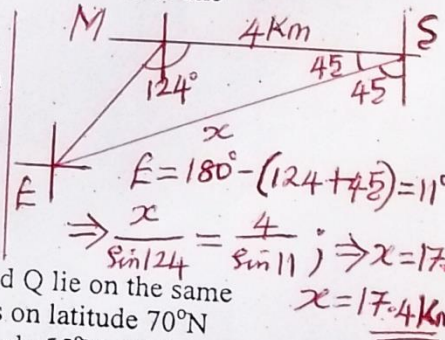 M 4Km S
45
124° 45
x
E = 180° - (124 + 45) = 11°
E
⇒ x/Sin124 = 4/Sin11 ; ⇒ x = 17.
d Q lie on the same
x = 17.4Km
s on latitude 70°N